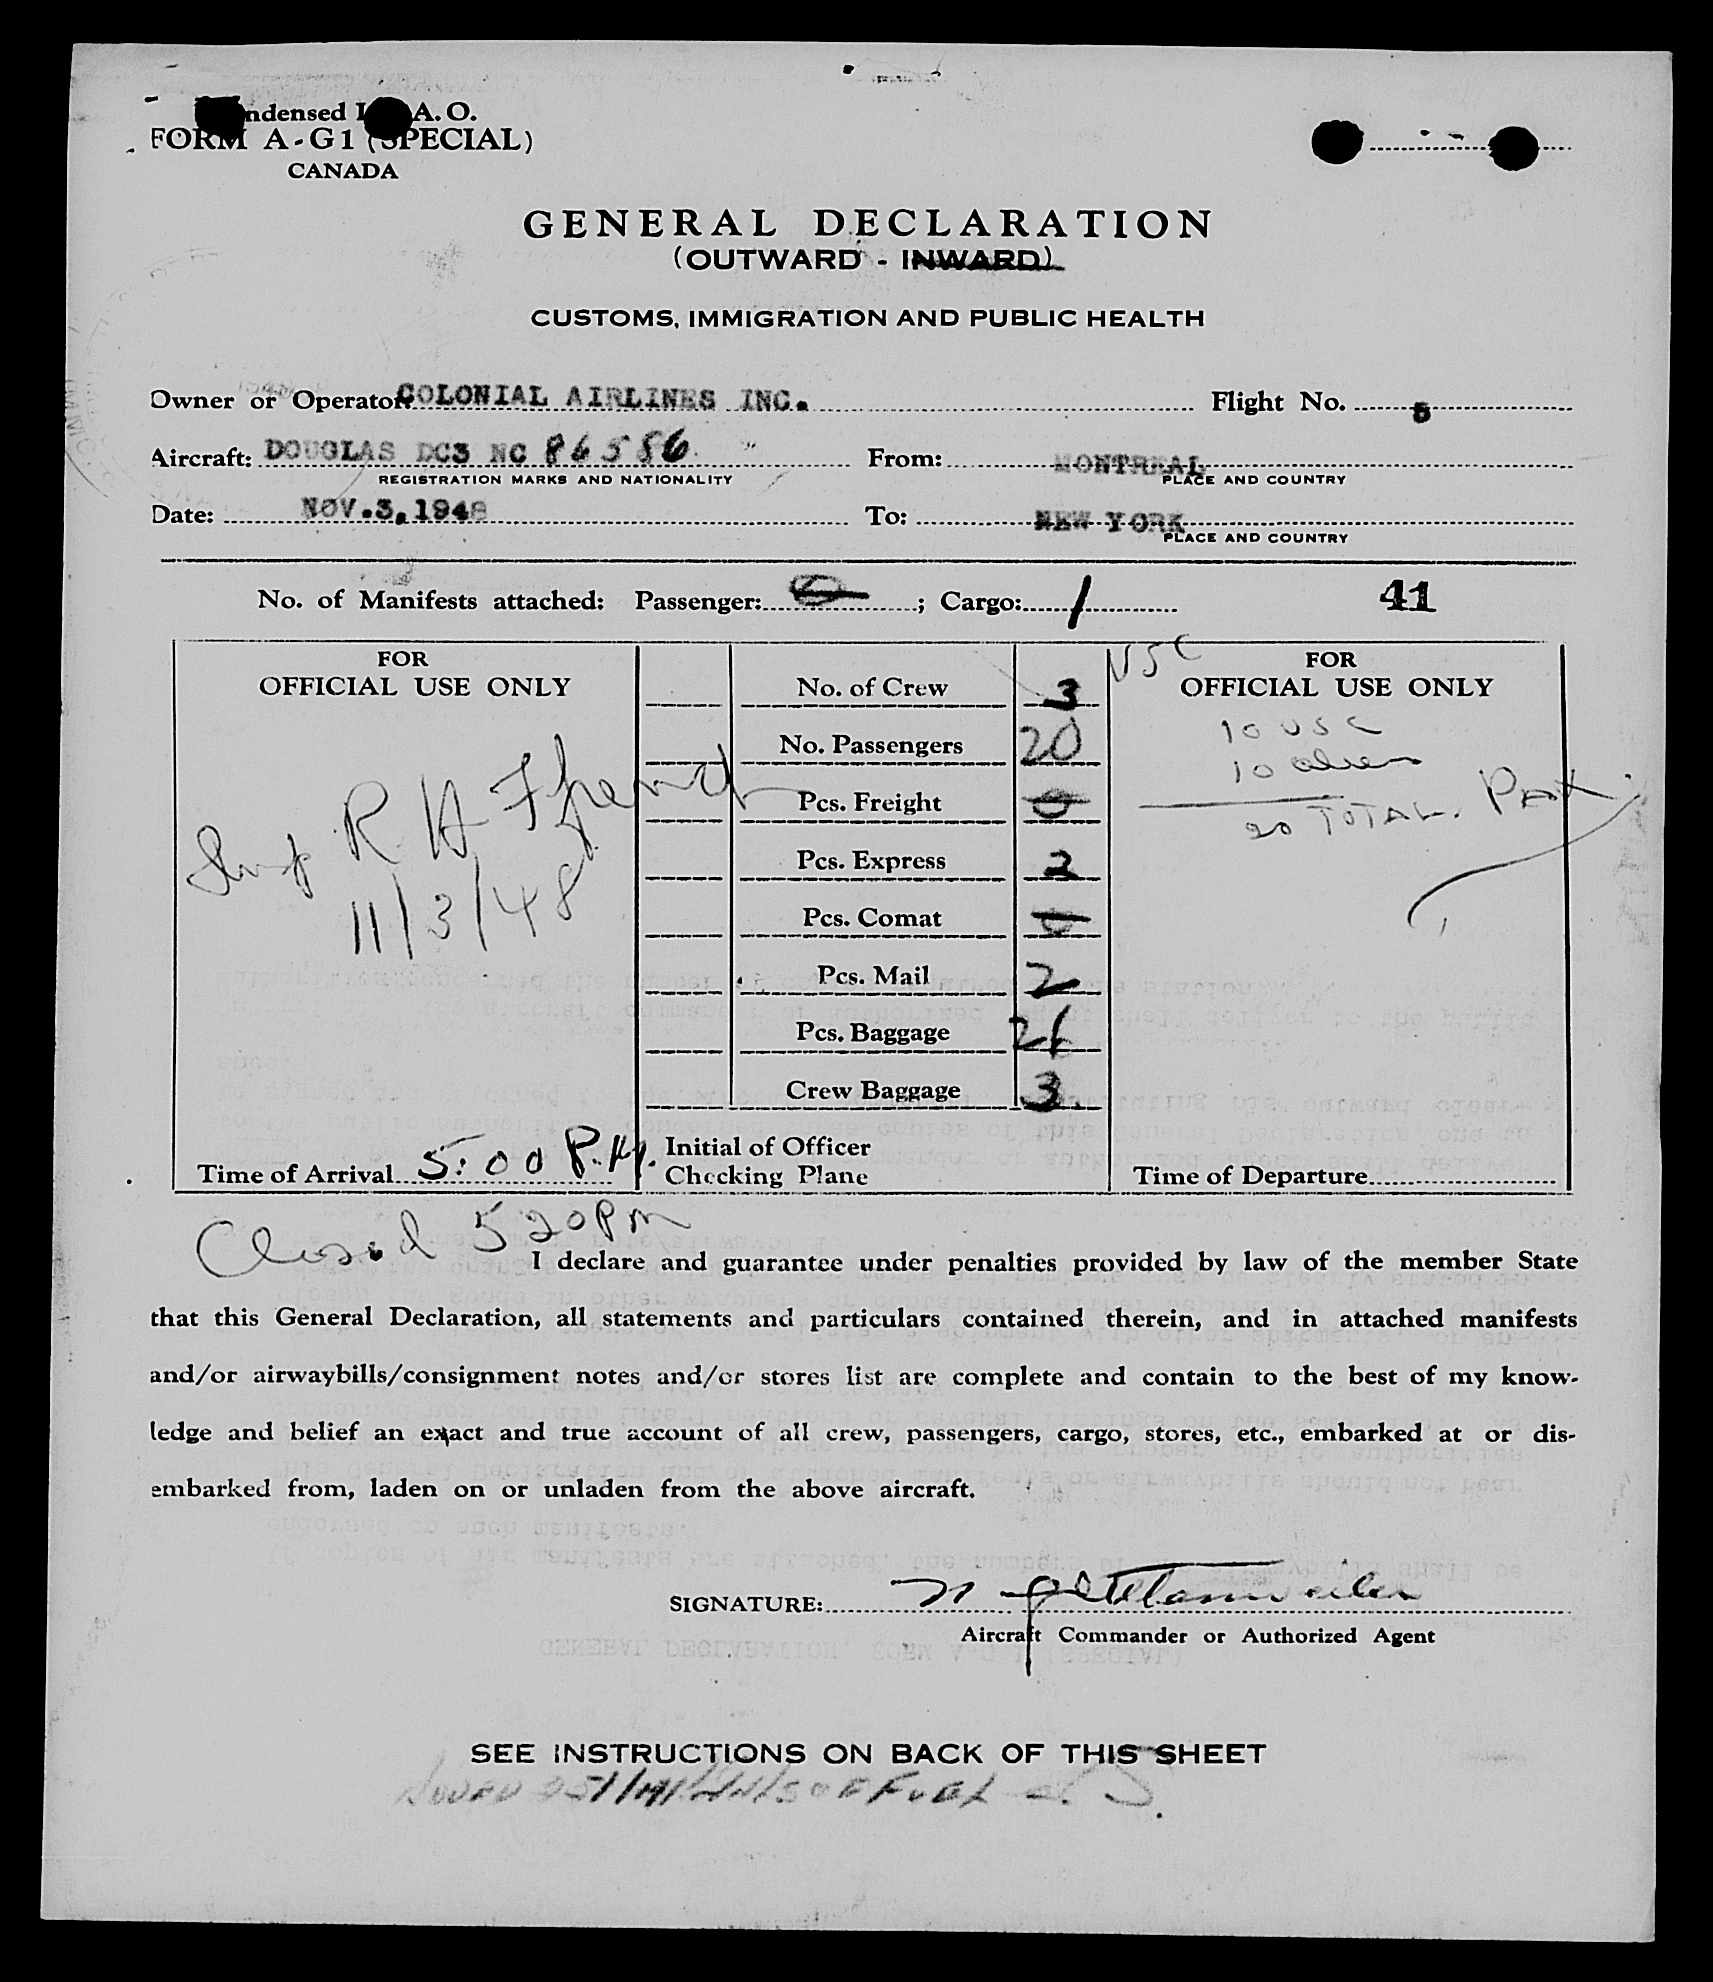 Condensed I.C.A.O.
FORM A-G1 (SPECIAL)
CANADA
GENERAL DECLARATION
(OUTWARD - INWARD)
CUSTOMS, IMMIGRATION AND PUBLIC HEALTH
Owner or Operator COLONIAL AIRLINES INC. Flight No. 5
Aircraft: DOUGLAS DC3 NC 86586 From: MONTREAL
REGISTRATION MARKS AND NATIONALITY PLACE AND COUNTRY
Date: NOV.3,1948 To: NEW YORK
PLACE AND COUNTRY
No. of Manifests attached: Passenger: 0; Cargo: 1 41
FOR
OFFICIAL USE ONLY
R H French
11/3/48
No. of Crew 3
No. Passengers 20
Pcs. Freight 0
Pcs. Express 2
Pcs. Comat 0
Pcs. Mail 2
Pcs. Baggage 26
Crew Baggage 3
USC
FOR
OFFICIAL USE ONLY
10 USC
10 alien
20 TOTAL. PAX
Time of Arrival 5:00 P.M.
Initial of Officer
Checking Plane
Time of Departure
Closed 520PM
I declare and guarantee under penalties provided by law of the member State
that this General Declaration, all statements and particulars contained therein, and in attached manifests
and/or airwaybills/consignment notes and/or stores list are complete and contain to the best of my know-
ledge and belief an exact and true account of all crew, passengers, cargo, stores, etc., embarked at or dis-
embarked from, laden on or unladen from the above aircraft.
SIGNATURE:
Aircraft Commander or Authorized Agent
SEE INSTRUCTIONS ON BACK OF THIS SHEET
OF FUEL